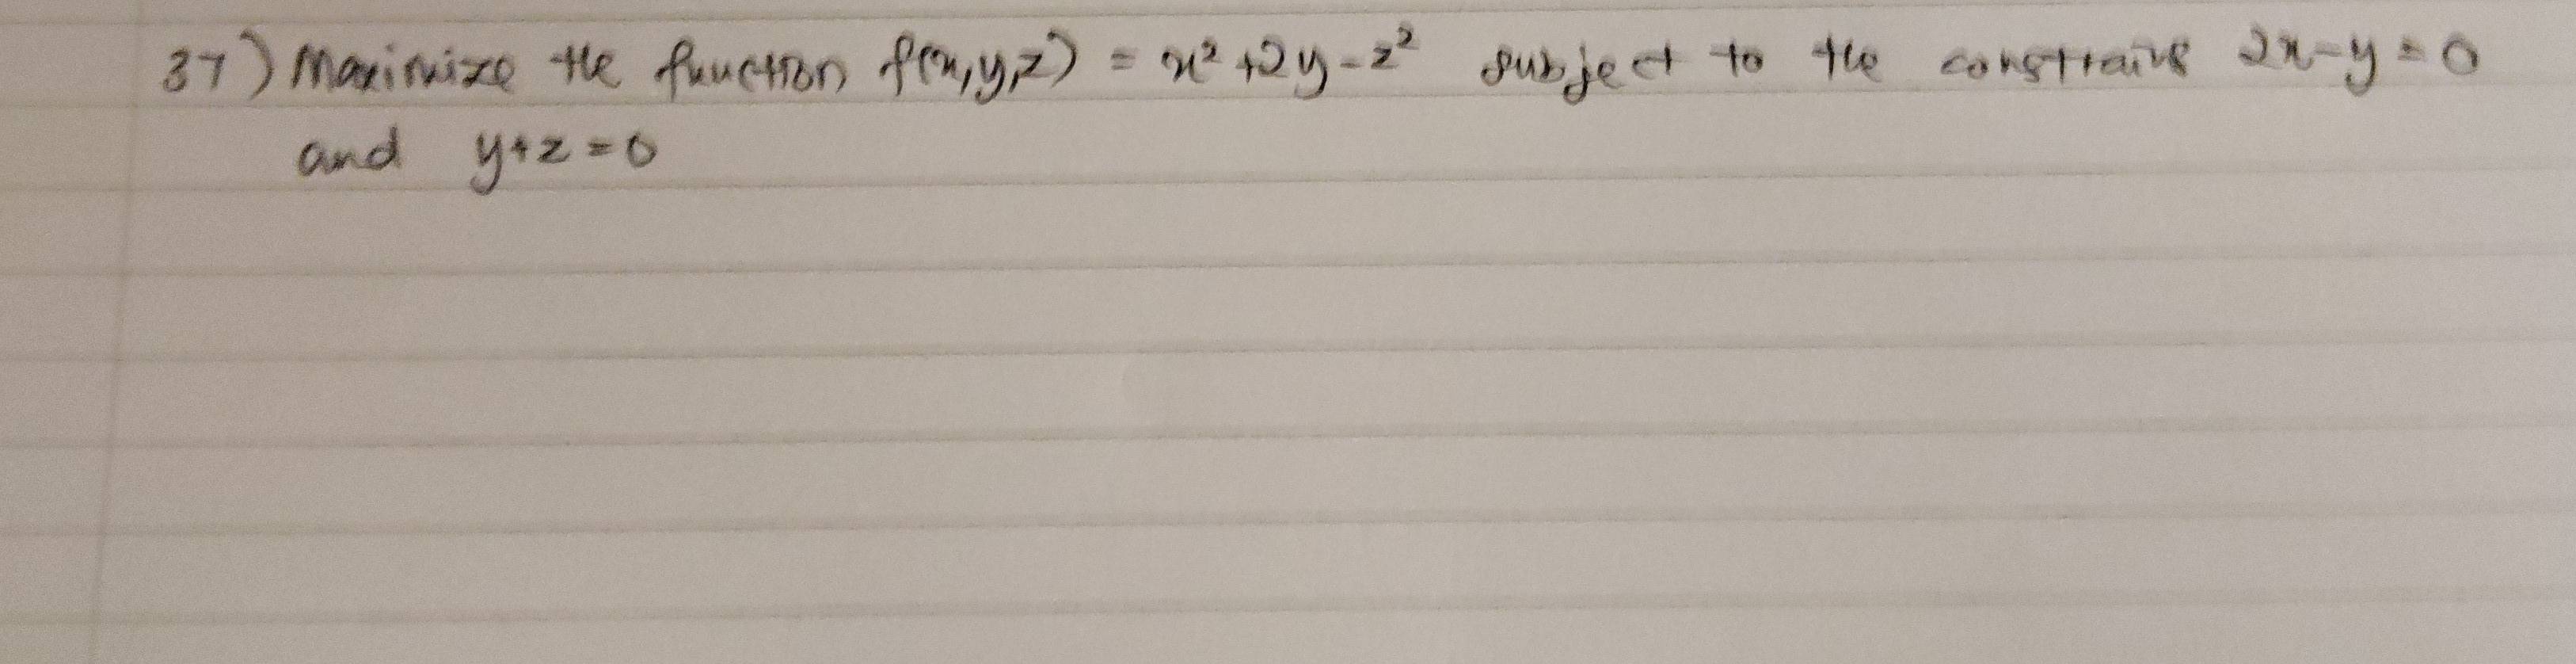 37) Maximize the function f(x,y,z) = x² +2y - z² subject to the constrains 2x-y=0
and y+z=0